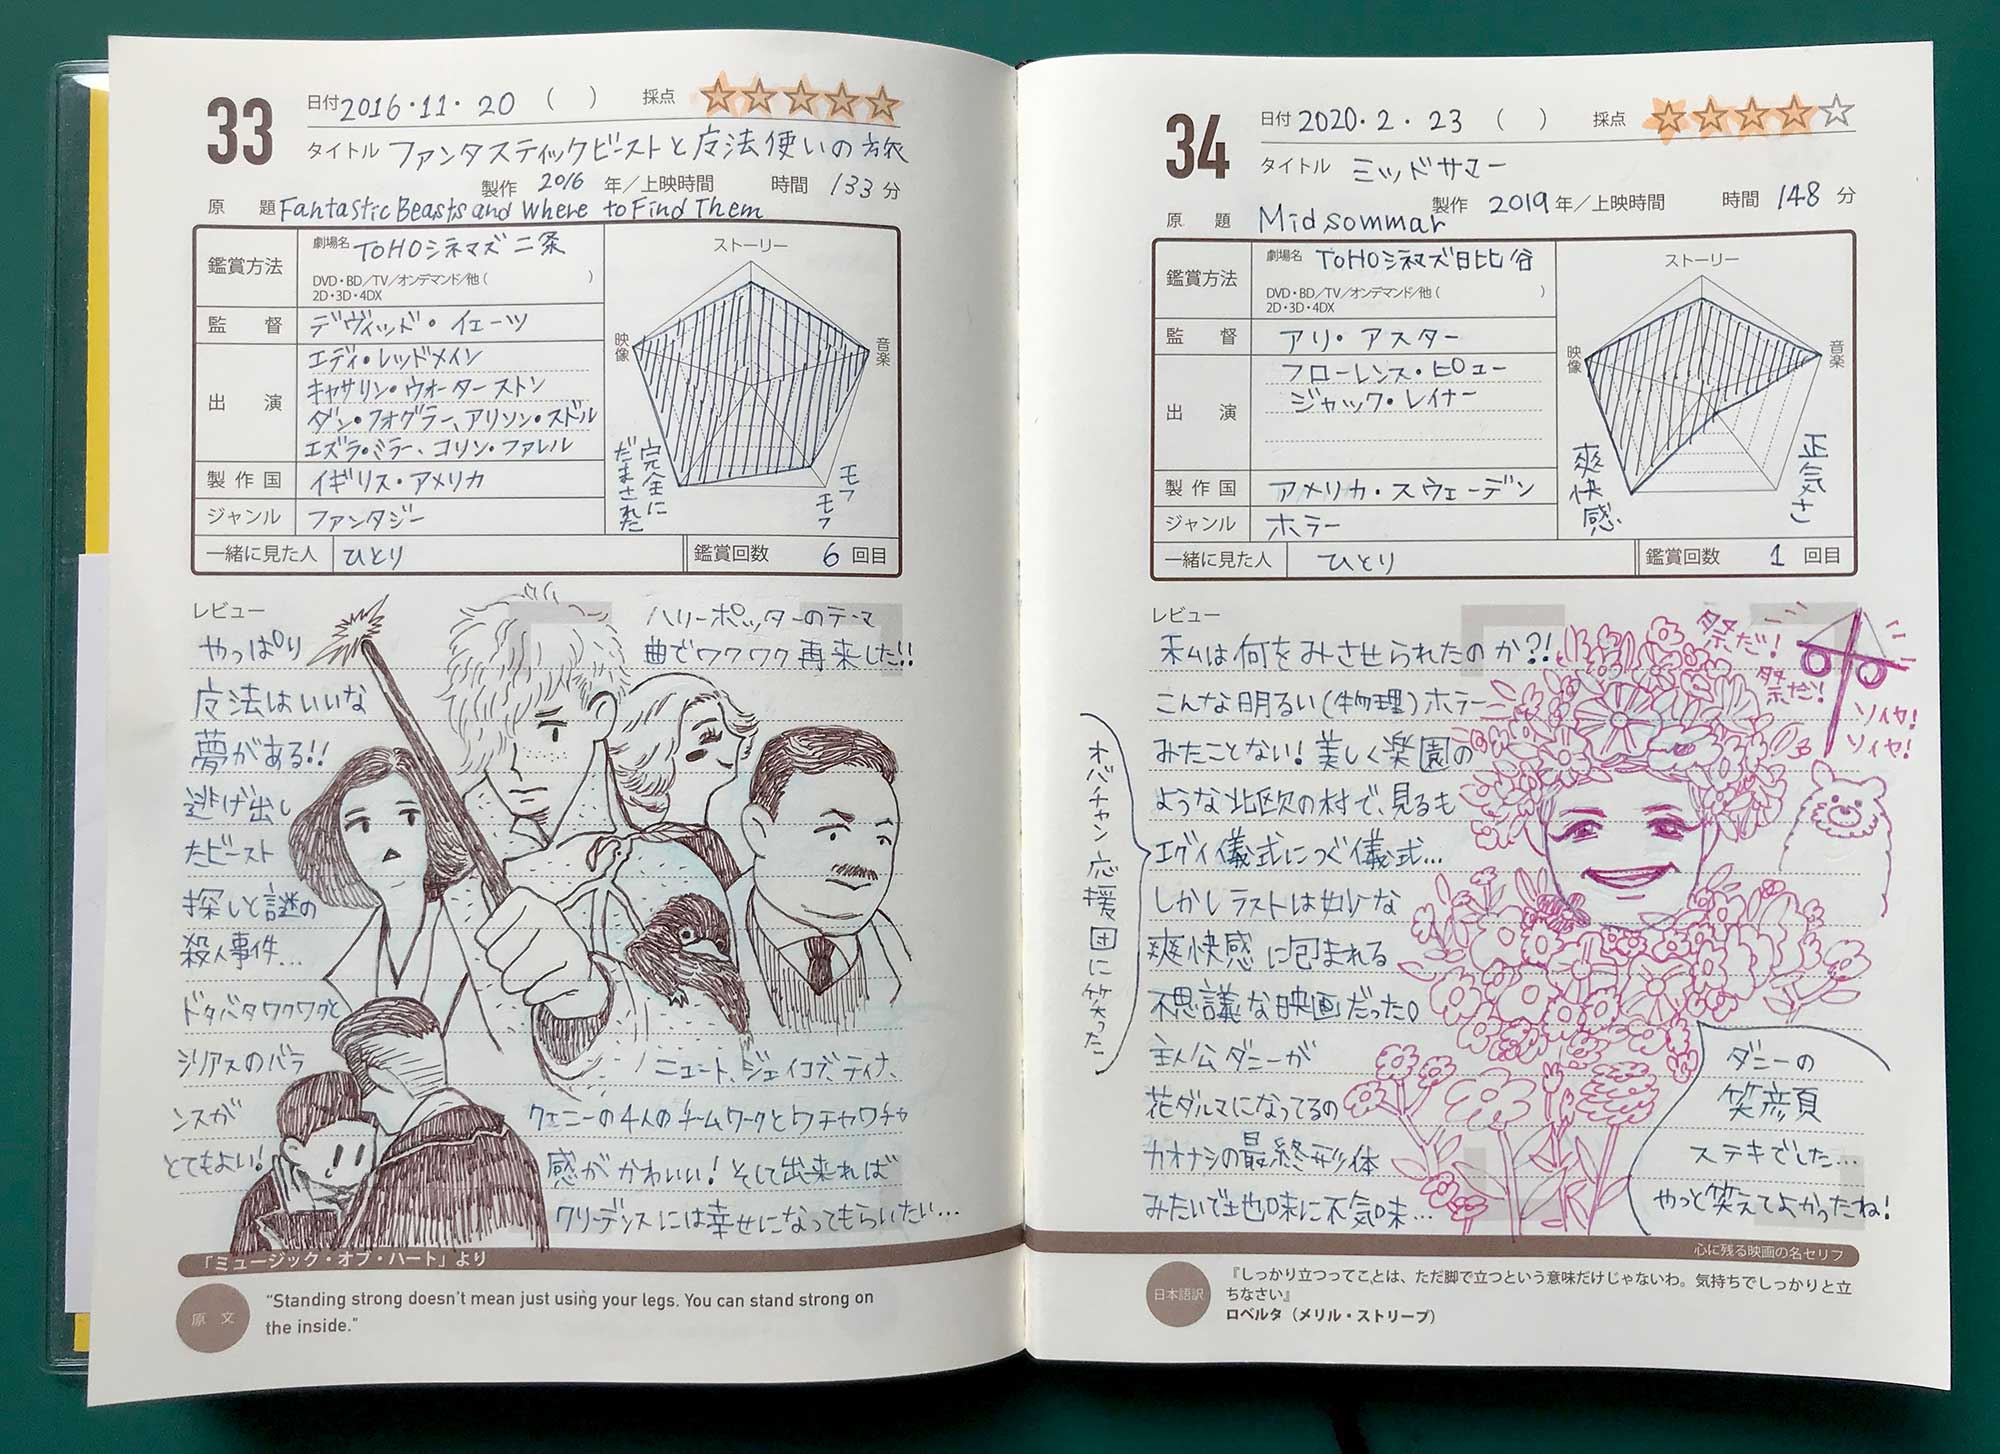 33
日付 2016・11・20 ( ) 採点
タイトル ファンタスティックビーストと魔法使いの旅
製作 2016 年／上映時間 時間 133 分
原題 Fantastic Beasts and Where to Find Them
鑑賞方法 劇場名 TOHOシネマズ二条
DVD・BD／TV／オンデマンド／他( )
2D・3D・4DX
監督 デヴィッド・イェーツ
出演 エディ・レッドメイン
キャサリン・ウォーターストン
ダン・フォグラー、アリソン・スドル
エズラ・ミラー、コリン・ファレル
製作国 イギリス・アメリカ
ジャンル ファンタジー
ストーリー
音楽
モフモフ
完全にだまされた
映像
一緒に見た人 ひとり 鑑賞回数 6 回目
レビュー
やっぱり
魔法はいいな
夢がある!!
逃げ出し
たビースト
探しと謎の
殺人事件…
ドタバタワクワクと
シリアスのバラ
ンスが
とてもよい!
ハリーポッターのテーマ
曲でワクワク再来した!!
ニュート、ジェイコブ、ティナ、
クェニーの4人のチームワークとワチャワチャ
感がかわいい! そして出来れば
クリーデンスには幸せになってもらいたい…
「ミュージック・オブ・ハート」より
原文
“Standing strong doesn't mean just using your legs. You can stand strong on
the inside.”
34
日付 2020・2・23 ( ) 採点
タイトル ミッドサマー
製作 2019 年／上映時間 時間 148 分
原題 Midsommar
鑑賞方法 劇場名 TOHOシネマズ日比谷
DVD・BD／TV／オンデマンド／他( )
2D・3D・4DX
監督 アリ・アスター
出演 フローレンス・ピュー
ジャック・レイナー
製作国 アメリカ・スウェーデン
ジャンル ホラー
ストーリー
音楽
正気さ
爽快感
映像
一緒に見た人 ひとり 鑑賞回数 1 回目
レビュー
私は何をみさせられたのか?!
こんな明るい(物理)ホラー
みたことない! 美しく楽園の
ような北欧の村で、見るも
エグイ儀式につぐ儀式…
しかしラストは妙な
爽快感に包まれる
不思議な映画だった。
主人公ダニーが
花ダルマになってるの
カオナシの最終形体
みたいで地味に不気味…
オバチャン応援団に笑った
祭だ!
祭だ!
ソイヤ!
ソイヤ!
ダニーの
笑顔
ステキでした…
やっと笑えてよかったね!
心に残る映画の名セリフ
日本語訳
『しっかり立つってことは、ただ脚で立つという意味だけじゃないわ。気持ちでしっかりと立
ちなさい』
ロベルタ（メリル・ストリープ）